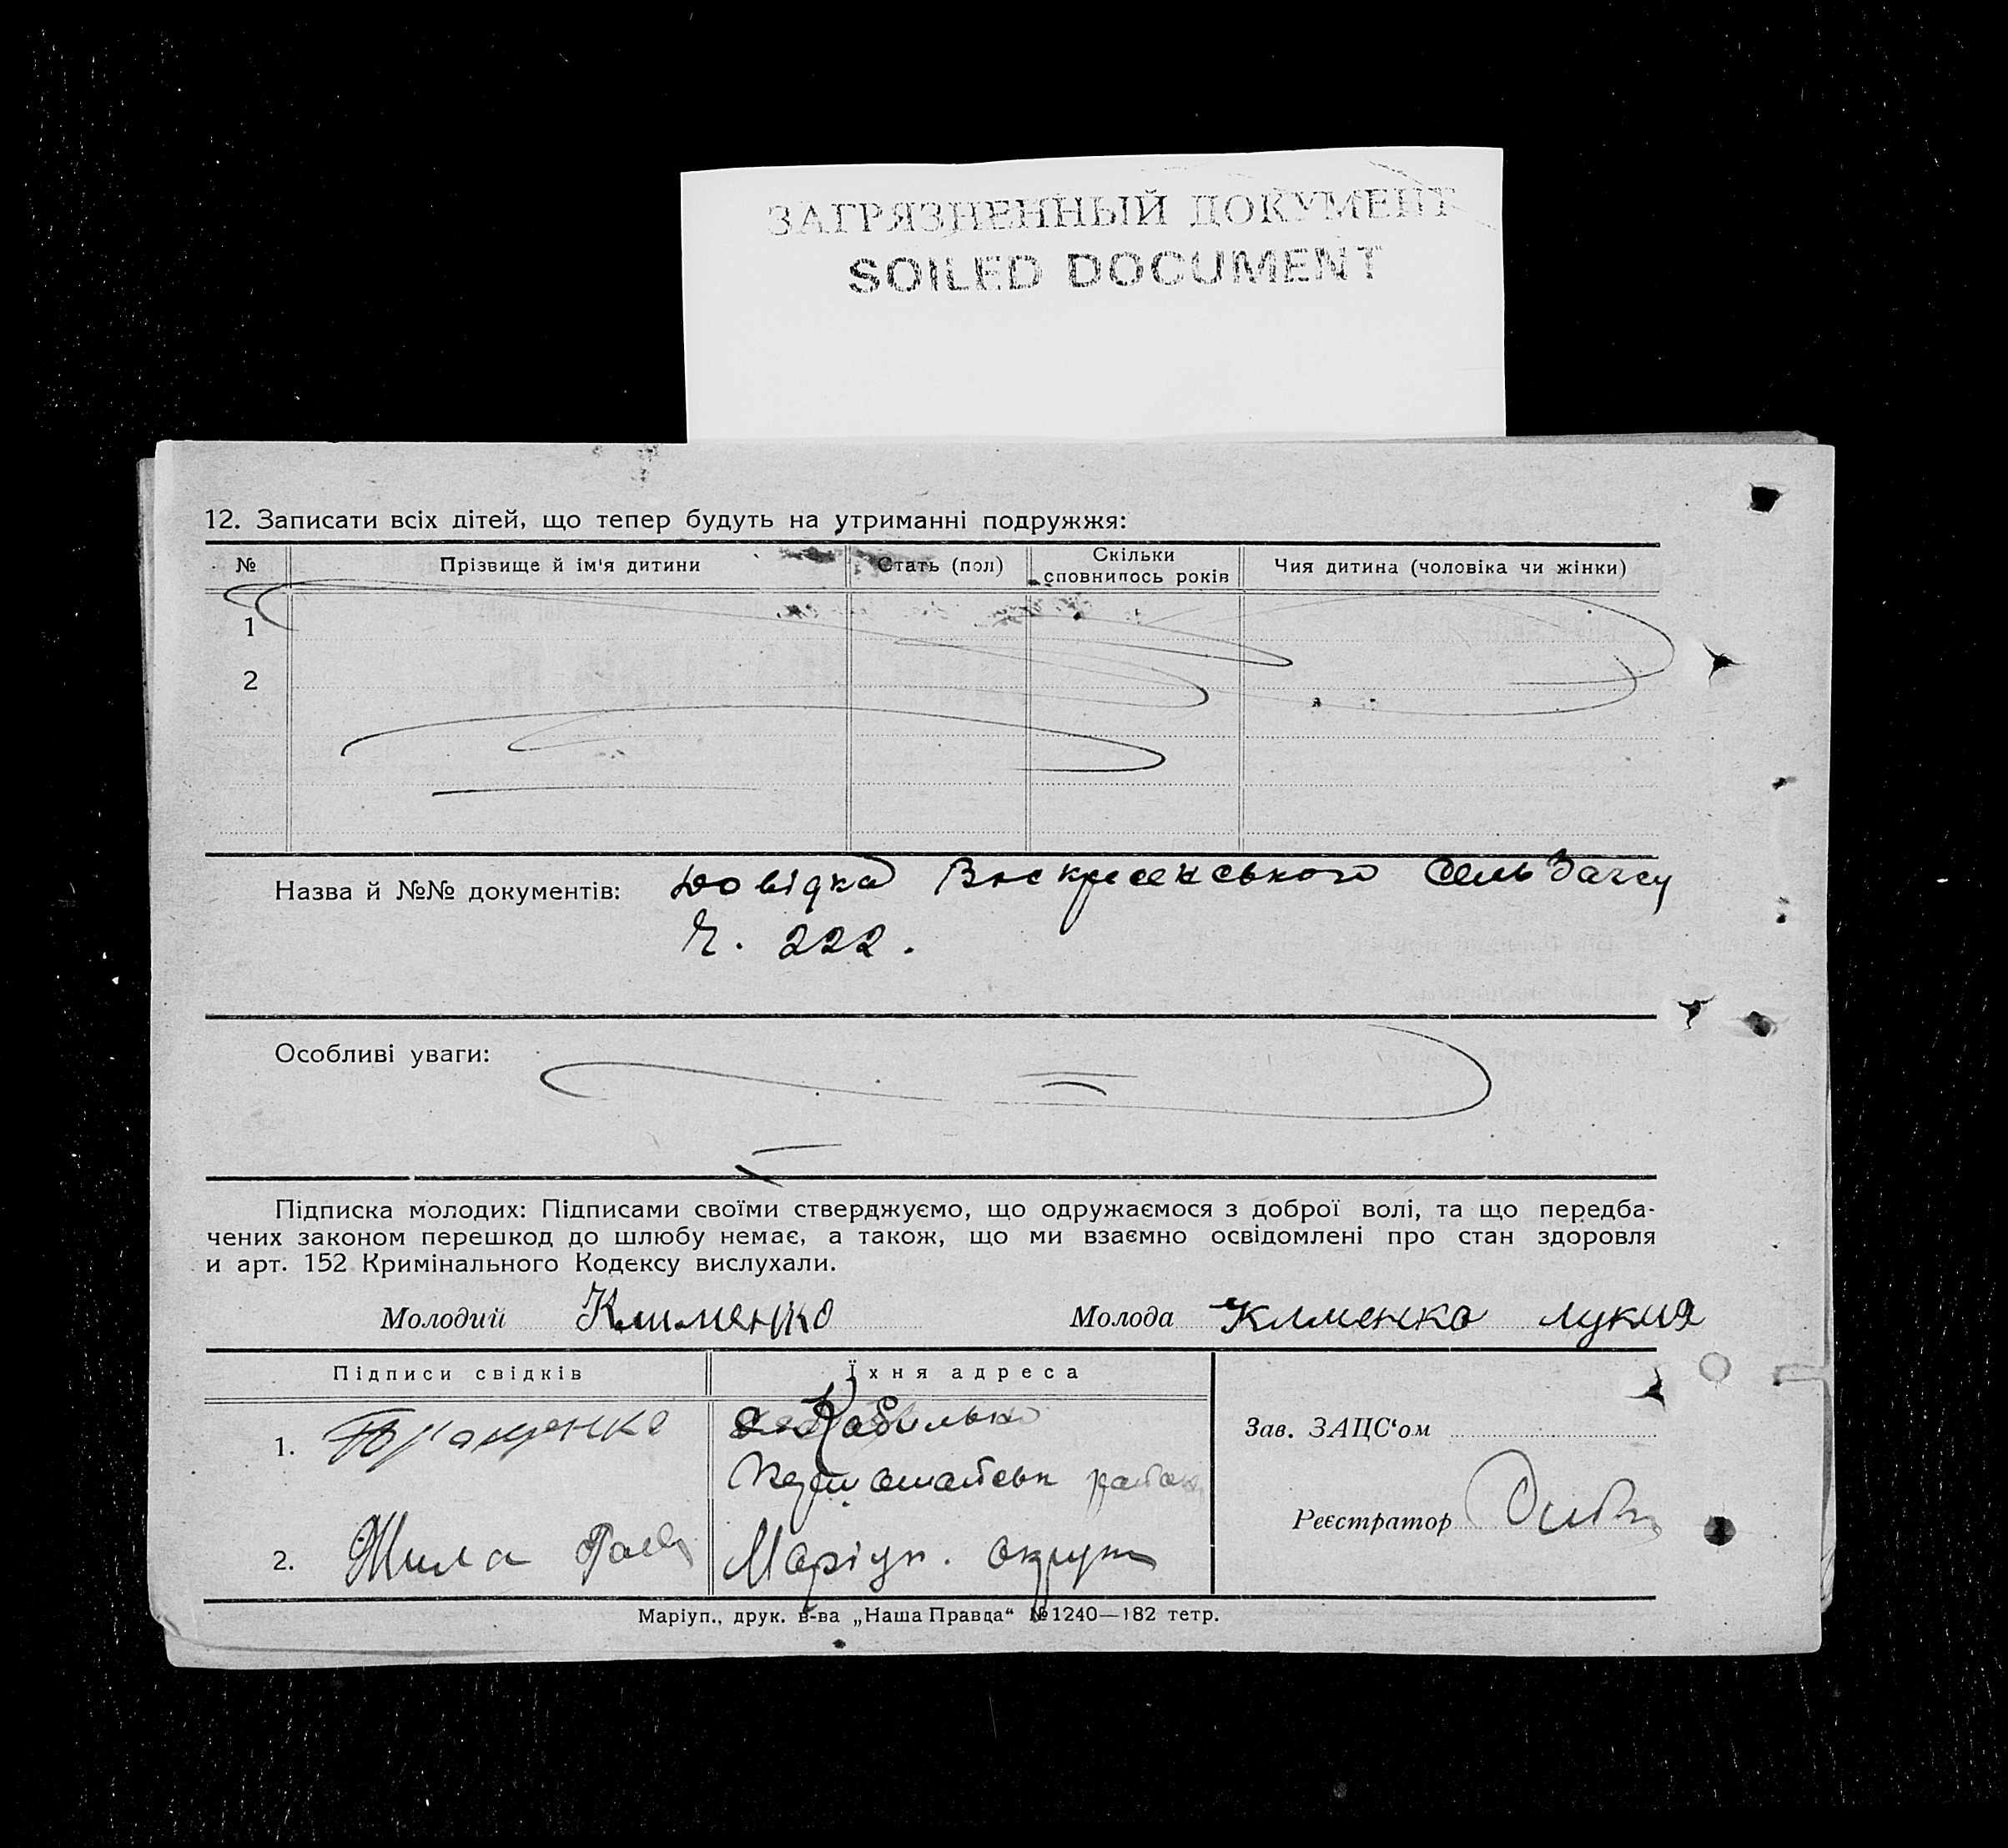 ЗАГРЯЗНЕННЫЙ ДОКУМЕНТ
SOILED DOCUMENT
12. Записати всіх дітей, що тепер будуть на утриманні подружжя:
№ Прізвище й ім'я дитини Стать (пол) Скільки сповнилось років Чия дитина (чоловіка чи жінки)
1
2
Назва й №№ документів: Довідка Воскресенського СельЗагсу
Ч. 222.
Особливі уваги:
Підписка молодих: Підписами своїми стверджуємо, що одружаємося з доброї волі, та що передба-
чених законом перешкод до шлюбу немає, а також, що ми взаємно освідомлені про стан здоровля
и арт. 152 Кримінального Кодексу вислухали.
Молодий Клименко Молода Клменко Лукия
Підписи свідків Їхня адреса
1.
Зав. ЗАЦС'ом
район
Реєстратор
2. Жила Маріуп. округи
Маріуп., друк. в-ва „Наша Правда“ №1240—182 тетр.